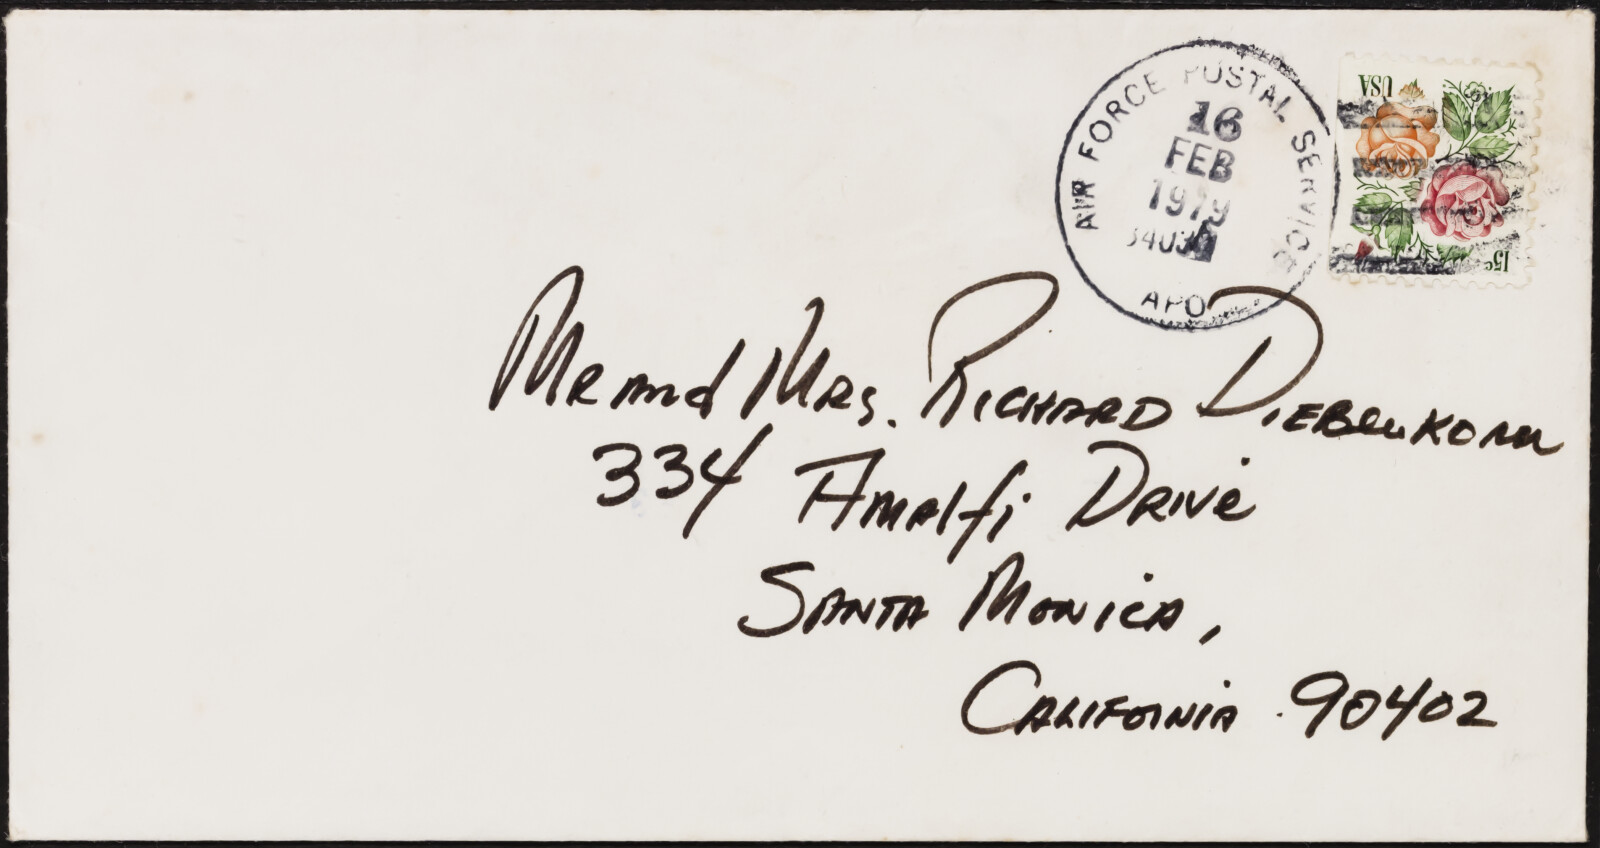 AIR FORCE POSTAL SERVICE
16
FEB
1979
APO
USA
15c
Mr and Mrs. Richard Diebenkorn
334 Amalfi Drive
Santa Monica,
California 90402